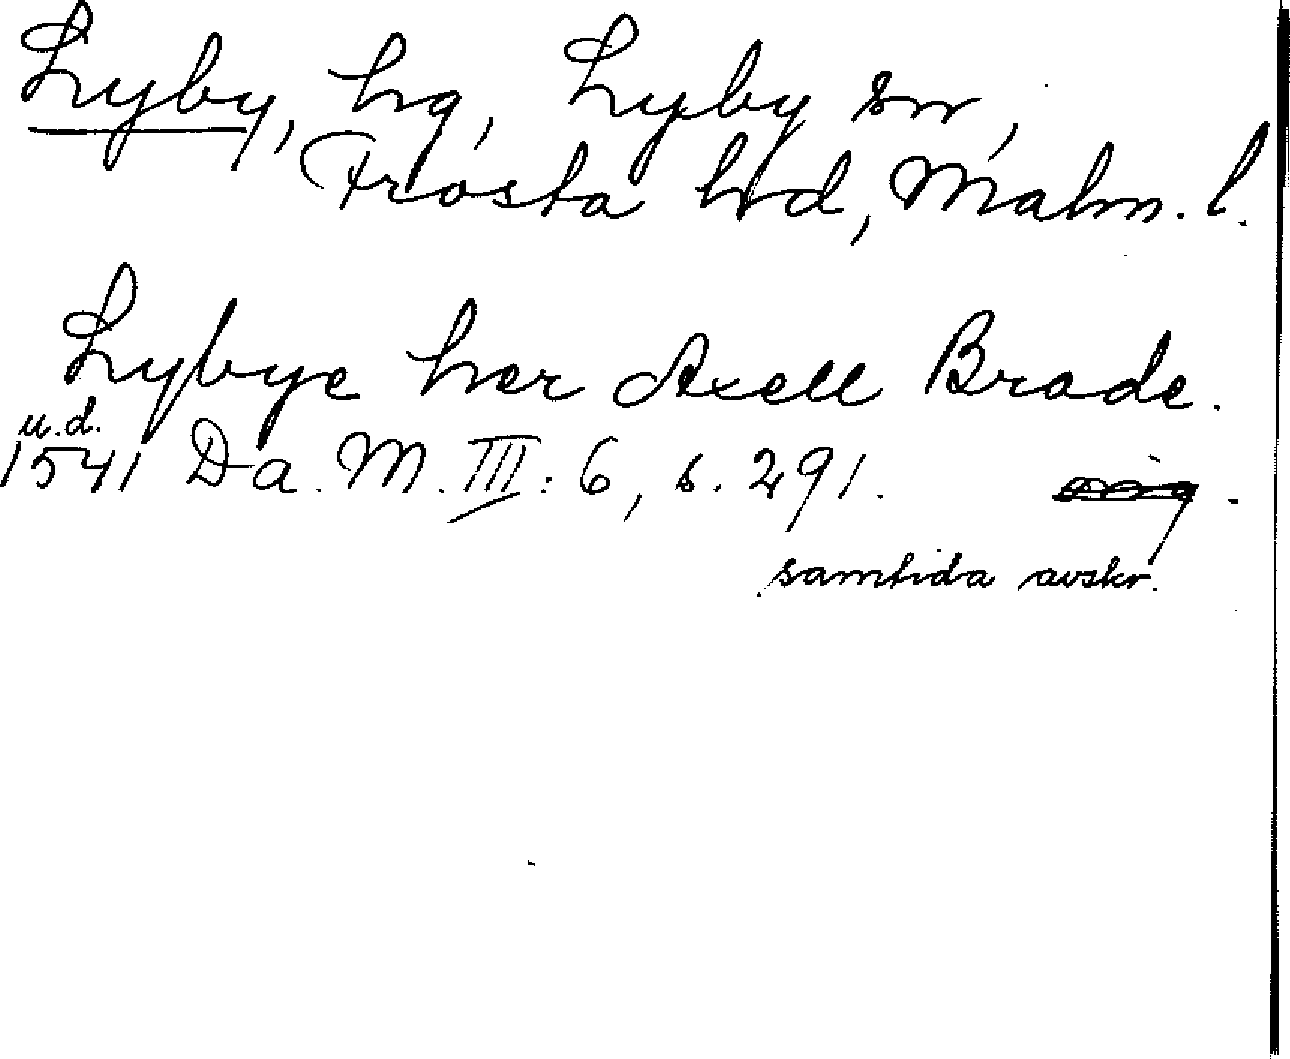 Lyby, hg, Lyby sn,
Frosta hrd, Malm. l.
Lybye her Axell Brade.
u.d.
1541 Da. M. III: 6, s. 291.
samtida avskr.